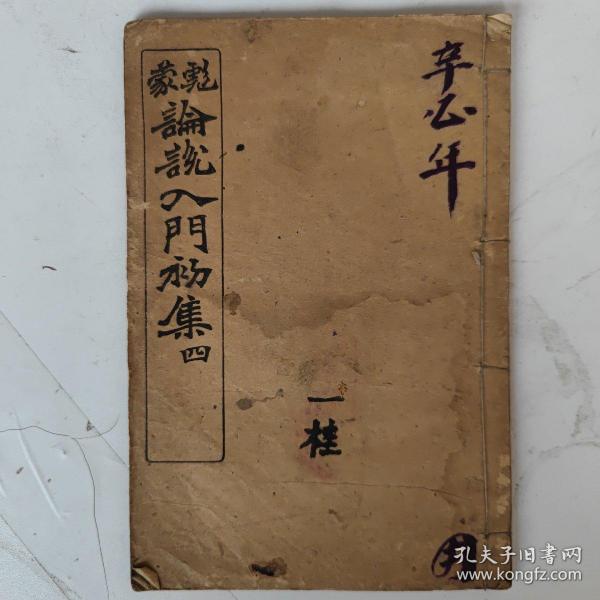 辛 年
一桂
彪蒙
論說入門初集
四
孔夫子旧书网
www.kongfz.com